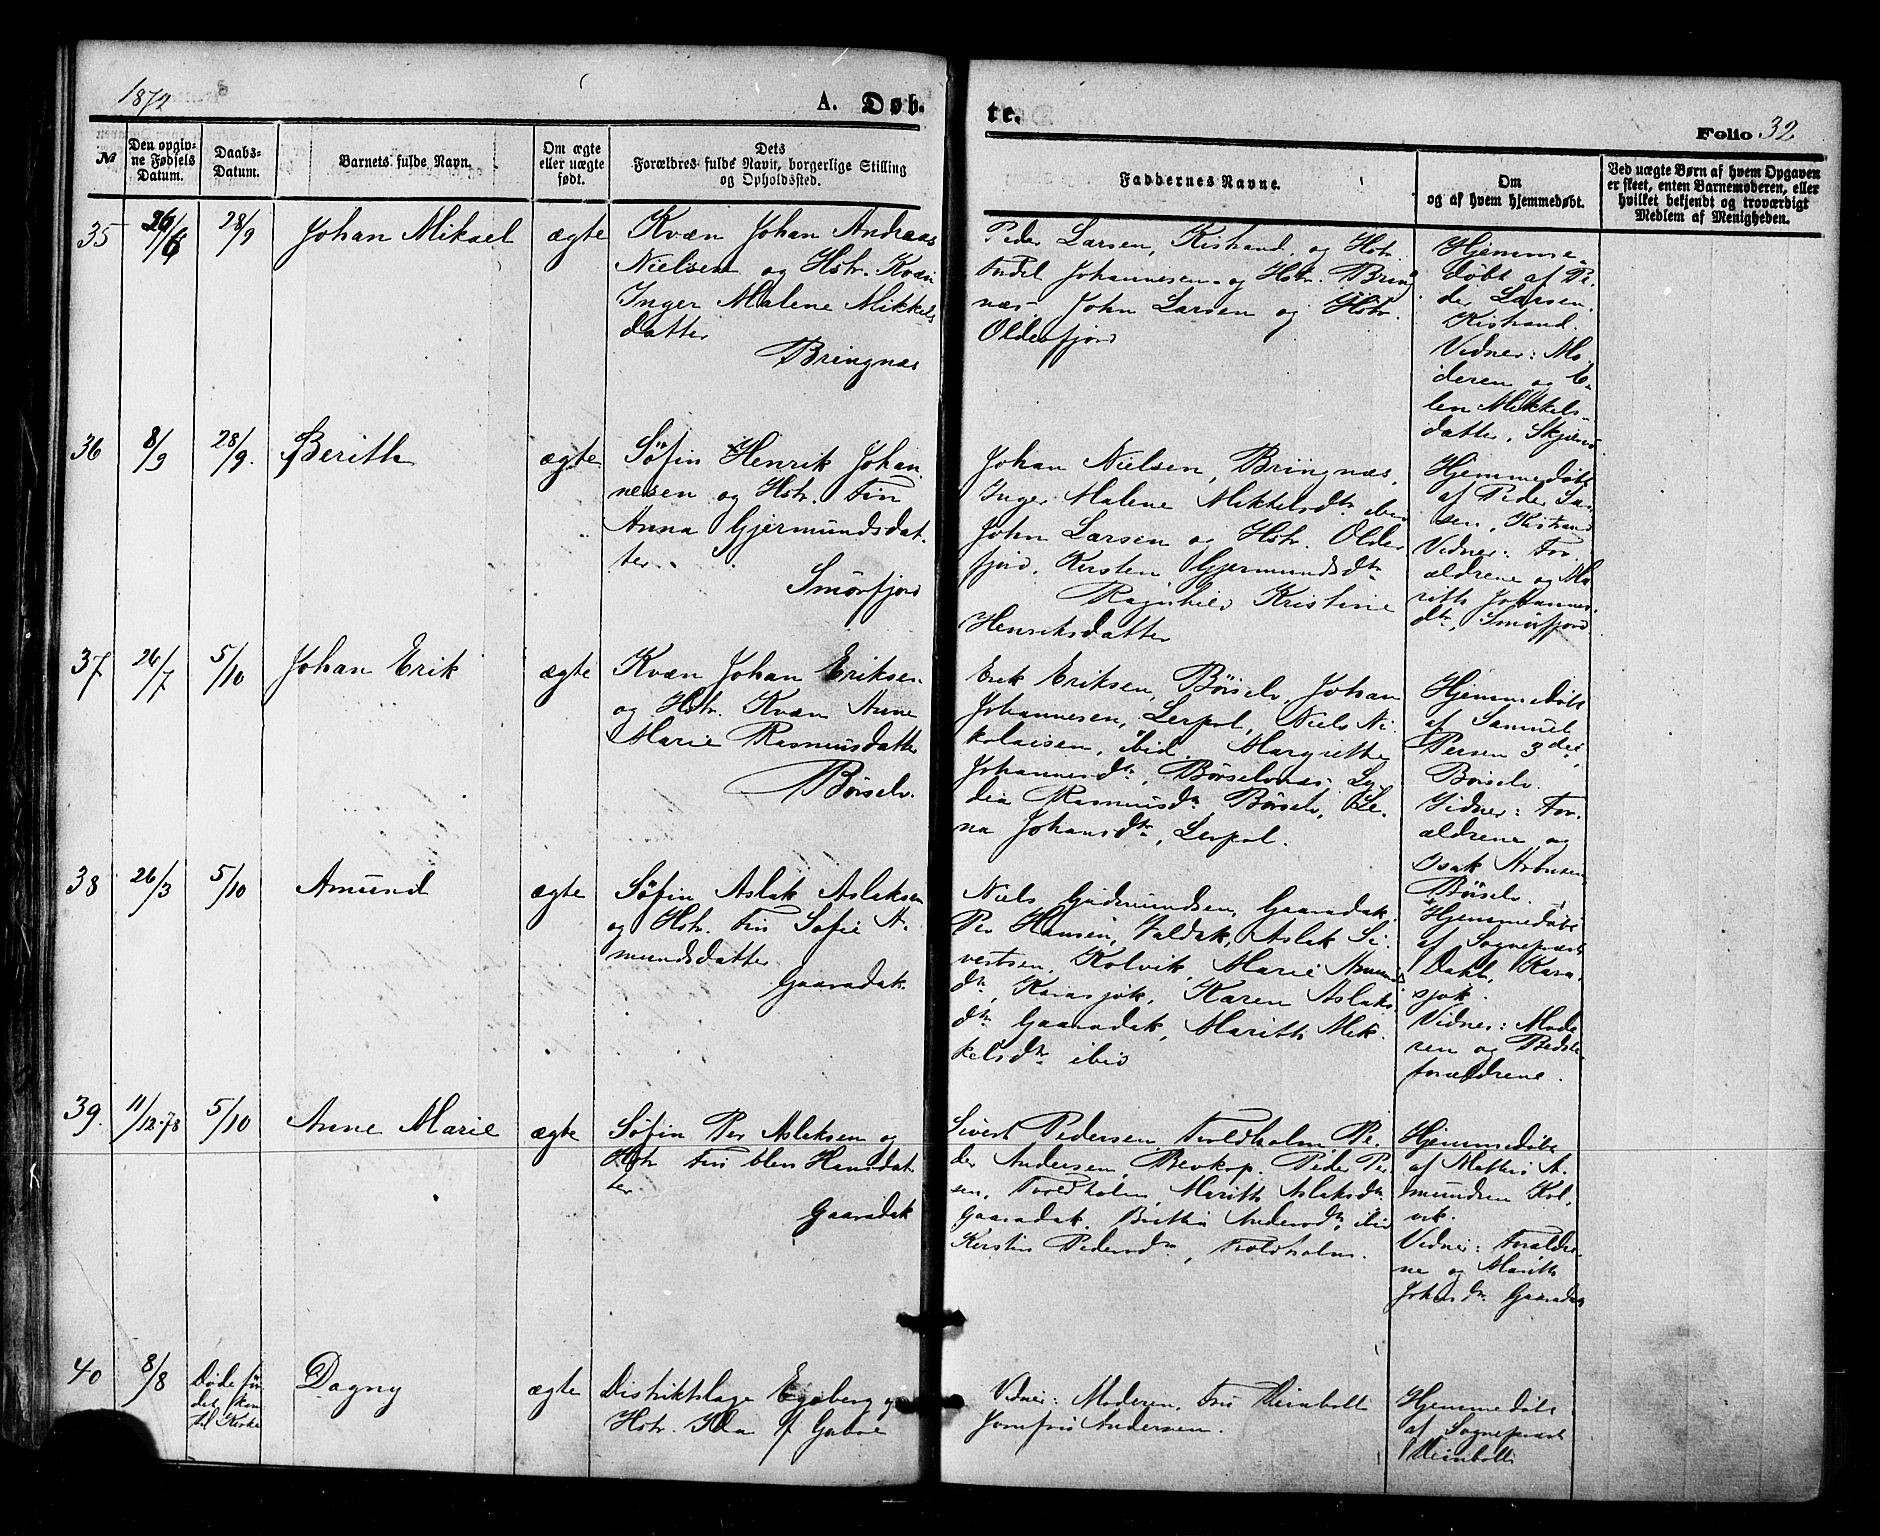 1879
A. Døb-
te.
Folio 32
№
Den opgiv-
ne Fødsels
Datum.
Daabs-
Datum.
Barnets fulde Navn.
Om ægte
eller uægte
født.
Dets
Forældres fulde Navn, borgerlige Stilling
og Opholdssted.
Faddernes Navne.
Om
og af hvem hjemmedøbt.
Ved uægte Børn af hvem Opgaven
er skeet, enten Barnemoderen, eller
hvilket bekjendt og troværdigt
Medlem af Menigheden.
35
26/6
28/9
Johan Mikael
ægte
Kvæn Johan Andreas
Nielsen og Hstr. Kvæn
Inger Malene Mikkels
datter
Bringnæs
Peder Larsen, Kistrand, og Hstr.
Johannesen og Hstr. Bring
næs. John Larsen og Hstr.
Olderfjord
Hjemme-
døbt af Pe-
der Larsen,
Kistrand.
Vidner: Mo-
deren og E-
len Mikkels-
datter,
36
8/9
28/9.
Berith
ægte
Søfin Henrik Johan
nesen og Hstr. Fin
Anna Gjermundsdat-
ter.
Smørfjord
Johan Nielsen, Bringnæs,
Inger Malene Mikkelsdtr ibid
John Larsen og Hstr. Older
fjord, Kirsten Gjermundsdtr
Ragnhild Kristine
Henriksdatter
Hjemmedøbt
af Peder Lar
sen, Kistrand
Vidner: For
ældrene og Ma
rith Johannes
dtr, Smørfjord
37
26/7
5/10
Johan Erik
ægte
Kvæn Johan Eriksen
og Hstr. Kvæn Anne
Marie Rasmusdatter
Børselv.
Erik Eriksen, Børselv, Johan
Johannesen, Lerpol, Niels Ni-
kolaisen, ibid, Margrethe
Johannesdtr, Børselvnæs, Ly-
dia Rasmusdtr Børselv, Le-
na Johansdtr, Lerpol.
Hjemmedøbt
af Samuel
Persen 3die,
Børselv.
Vidner: For-
ældrene og
Isak
Børselv.
38
26/3
5/10
Amund
ægte
Søfin Aslak Aslaksen
og Hstr. Fin Sofie A-
mundsdatter
Gaaradak.
Niels Gudmundsen, Gaaradak.
Per Hansen, Valdak, Aslak Si-
vertsen, Kolvik, Marie Amunds
dtr, Karasjok, Karen Aslaks
dtr Gaaradak, Marith Mik-
kelsdtr ibid
Hjemmedøbt
af Sogneprest
Dahl, Kara-
sjok.
Vidner: Mode
ren og Bedste
forældrene.
39.
11/12-78
5/10
Anne Marie
ægte
Søfin Per Aslaksen og
Hstr Fin Elen Hansdat
ter
Gaaradak
Sivert Pedersen, Troldholm, Pe-
der Andersen, Bevkop. Peder Per
sen, Troldholm, Marith Aslaksdtr
Gaaradak. Britha Andersdtr, ibid
Kirstin Pedersdtr, Troldholm.
Hjemmedøbt
af Mathis A-
mundsen Kol-
vik.
Vidner: Forældre-
ne og Marith
Johnsdtr Gaaradak
40
8/8
Døde før
det kom
til Kirke
Dagny
ægte
Distriktslæge Egeberg og
Hstr. Ida
Vidner: Moderen, Fru
Jomfru Andersen.
Hjemmedøbt
af Sogneprest